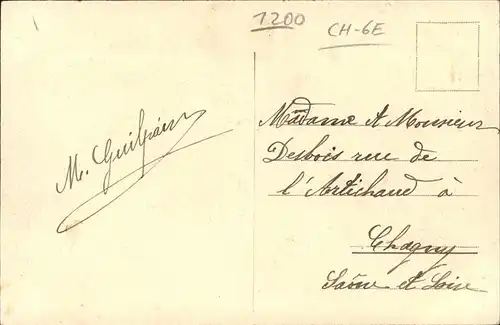 1200
CH-6E
M. Guilpain
Madame et Monsieur
Desbois rue de
l'Artichaud à
Chagny
Saône et Loire